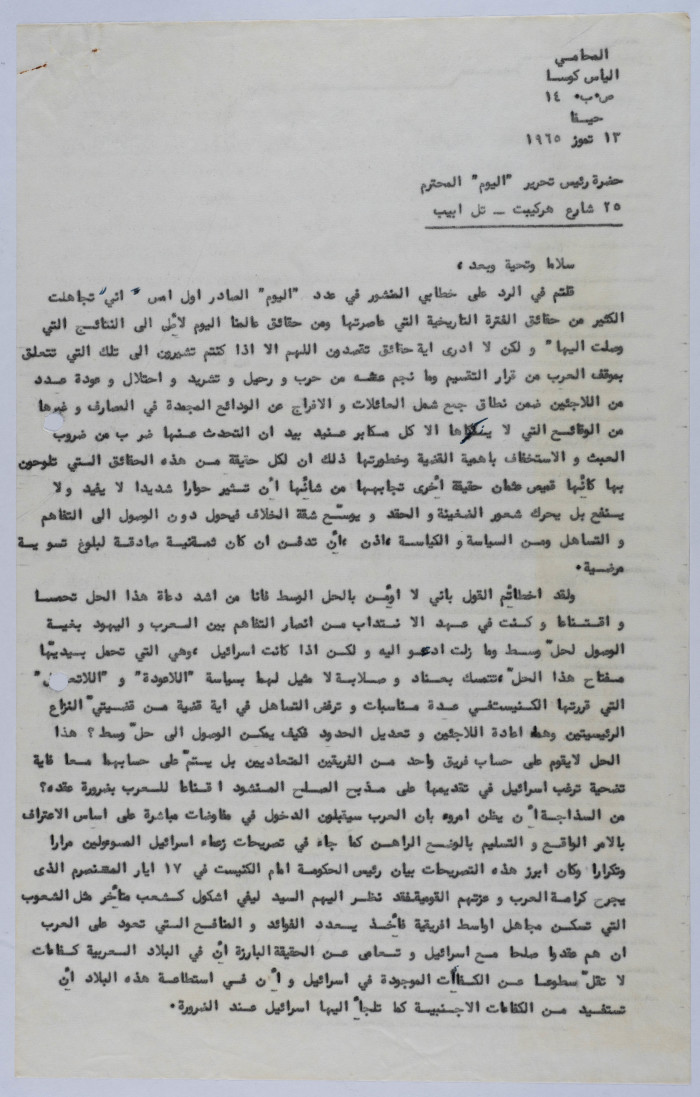 المحامي
الياس كوسا
ص٠ب٠ ١٤
حيفا
١٣ تموز ١٩٦٥
حضرة رئيس تحرير "اليوم" المحترم
٢٥ شارع هركيبت ــ تل ابيب
سلاما وتحية وبعد ،
قلتم في الرد على خطابي المنشور في عدد "اليوم" الصادر اول امس " اني تجاهلت
الكثير من حقائق الفترة التاريخية التي عاصرتها ومن حقائق عالمنا اليوم لأصل الى النتائج التي
وصلت اليها" و لكن لا ادرى اية حقائق تقصدون اللهم الا اذا كنتم تشيرون الى تلك التي تتعلق
بموقف العرب من قرار التقسيم وما نجم عنه من حرب و رحيل و تشريد و احتلال و عودة عدد
من اللاجئين ضمن نطاق جمع شمل العائلات و الافراج عن الودائع المجمدة في المصارف و غيرها
من الوقائع التي لا ينكرها الا كل مكابر عنيد بيد ان التحدث عنها ضرب من ضروب
العبث و الاستخفاف باهمية القضية وخطورتها ذلك ان لكل حقيقة من هذه الحقائق التي تلوحون
بها كأنّها قميص عثمان حقيقة أخرى تجابهها من شأنّها أن تثير حوارا شديدا لا يفيد ولا
ينفع بل يحرك شعور الضغينة و الحقد و يوسّع شقة الخلاف فيحول دون الوصول الى التفاهم
و التساهل ومن السياسة و الكياسة ،اذن ،أن تدفن ان كان ثمة نية صادقة لبلوغ تسوية
مرضية٠
ولقد اخطأتم القول باني لا اوُمن بالحل الوسط فانا من اشد دعاة هذا الحل تحمسا
و اقتناعا و كنت في عهد الانتداب من انصار التفاهم بين العرب و اليهود بغية
الوصول لحلّ وسط وما زلت ادعو اليه و لكن اذا كانت اسرائيل ،وهي التي تحمل بيديها
مفتاح هذا الحلّ ،تتمسك بعناد و صلابة لا مثيل لهما بسياسة "اللاعودة" و
التي قررتها الكنيست في عدة مناسبات و ترفض التساهل في اية قضية من قضيتي النزاع
الرئيسيتين وهما اعادة اللاجئين و تعديل الحدود فكيف يمكن الوصول الى حلّ وسط ؟ هذا
الحل لا يقوم على حساب فريق واحد من الفريقين المتعاديين بل يتمّ على حسابهما معا فاية
تضحية ترغب اسرائيل في تقديمها على مذبح الصلح المنشود اقناعا للعرب بضرورة عقده؟
من السذاجة أن يظن امروء بان العرب سيقبلون الدخول في مفاوضات مباشرة على اساس الاعتراف
بالامر الواقع و التسليم بالوضع الراهن كما جاء في تصريحات زعماء اسرائيل المسوءولين مرارا
وتكرارا وكان ابرز هذه التصريحات بيان رئيس الحكومة امام الكنيست في ١٧ ايار المنصرم الذى
يجرح كرامة العرب و عزتهم القومية فقد نظر اليهم السيد ليفي اشكول كشعب متأخر مثل الشعوب
التي تسكن مجاهل اواسط افريقية فأخذ يعدد الفوائد و المنافع التي تعود على العرب
ان هم عقدوا صلحا مع اسرائيل و تعامى عن الحقيقة البارزة أنّ في البلاد العربية كفاءات
لا تقلّ سطوعا عن الكفاآت الموجودة في اسرائيل و أن في استطاعة هذه البلاد أن
تستفيد من الكفاءات الاجنبية كما تلجأ اليها اسرائيل عند الضرورة٠